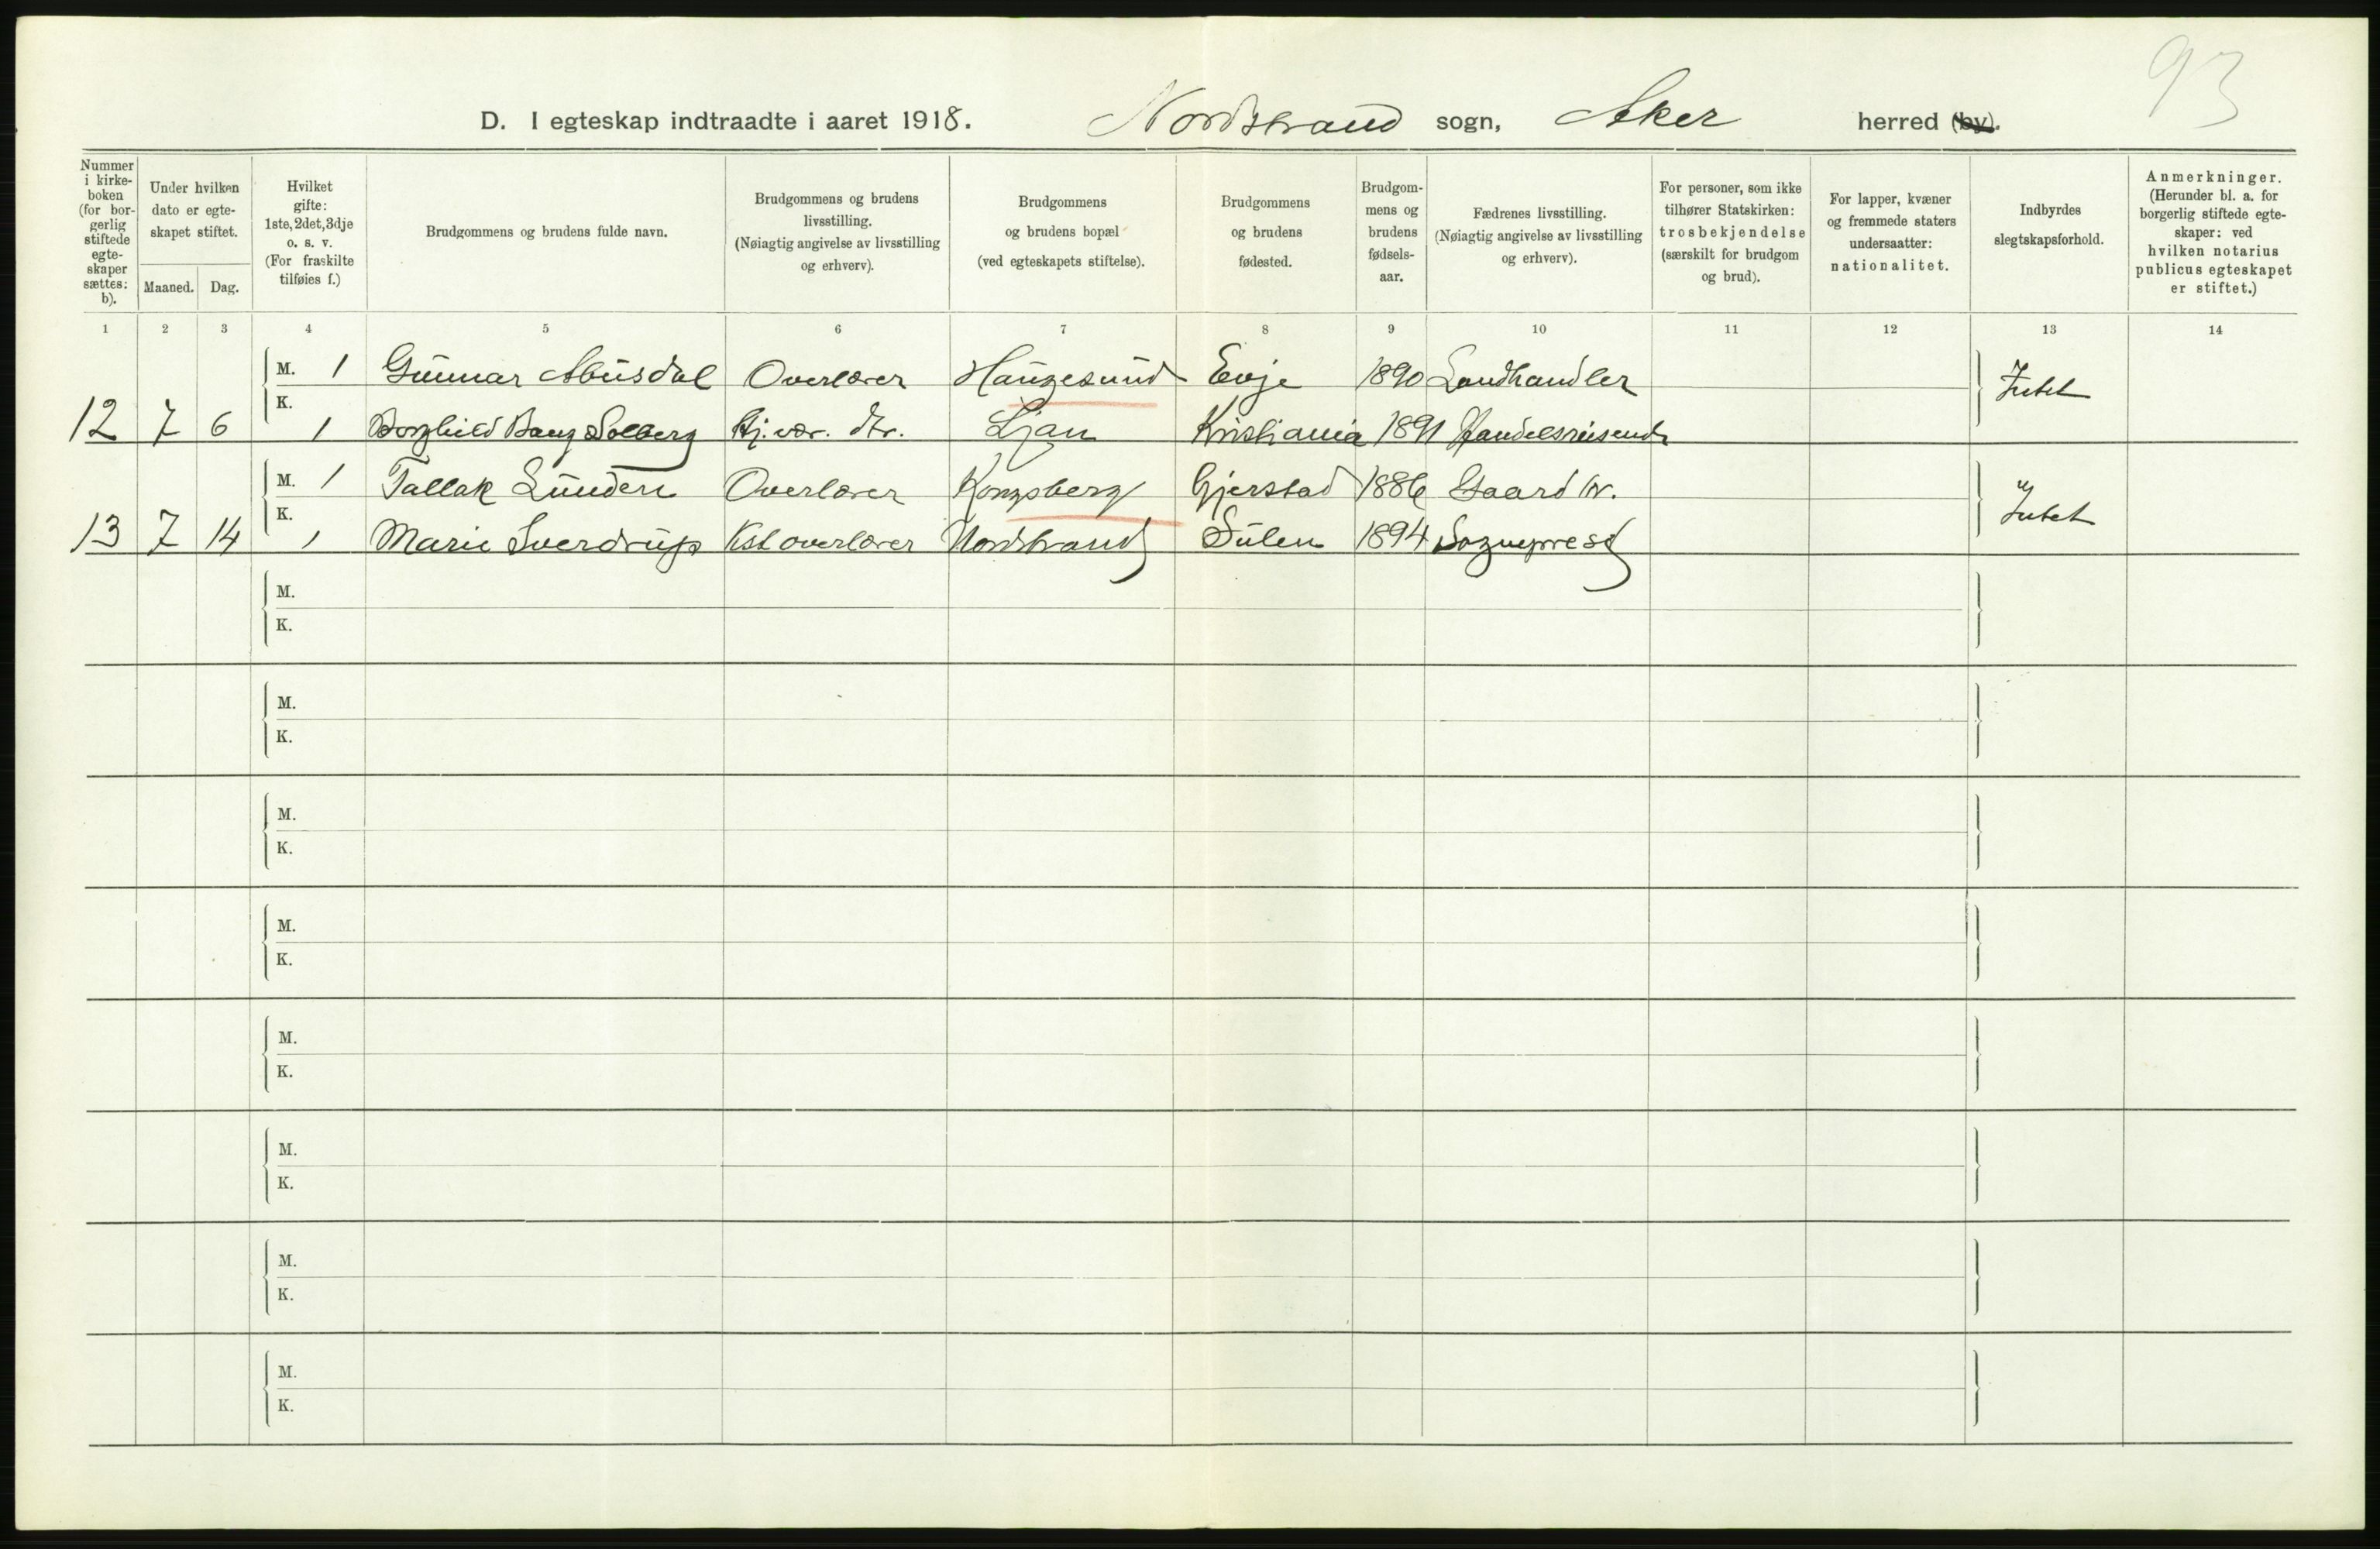 93
D. I egteskap indtraadte i aaret 1918. Nordstrand sogn, Aker herred (by).
Nummer i kirke-boken (for bor-gerlig stiftede egte-skaper sættes: b).
Under hvilken dato er egte-skapet stiftet.
Maaned. Dag.
Hvilket gifte: 1ste, 2det, 3dje o. s. v. (For fraskilte tilføies f.)
Brudgommens og brudens fulde navn.
Brudgommens og brudens livsstilling. (Nøiagtig angivelse av livsstilling og erhverv).
Brudgommens og brudens bopæl (ved egteskapets stiftelse).
Brudgommens og brudens fødested.
Brudgom-mens og brudens fødsels-aar.
Fædrenes livsstilling. (Nøiagtig angivelse av livsstilling og erhverv).
For personer, som ikke tilhører Statskirken: trosbekjendelse (særskilt for brudgom og brud).
For lapper, kvæner og fremmede staters undersaatter: nationalitet.
Indbyrdes slegtskapsforhold.
Anmerkninger. (Herunder bl. a. for borgerlig stiftede egte-skaper: ved hvilken notarius publicus egteskapet er stiftet.)
1 2 3 4 5 6 7 8 9 10 11 12 13 14
M. 1 Gunnar Abusdal Overlærer Haugesund Evje 1890 Landhandler Intet
12 7 6 K. 1 Borghild Bang Solberg Hj. vær. dtr. Ljan Kristiania 1891 Handelsreisende
M. 1 Tallak Lunden Overlærer Kongsberg Gjerstad 1886 Gaardbr. Intet
13 7 14 K. 1 Marie Sverdrup Kst overlærer Nordstrand Sulen 1894 Sogneprest
M.
K.
M.
K.
M.
K.
M.
K.
M.
K.
M.
K.
M.
K.
M.
K.